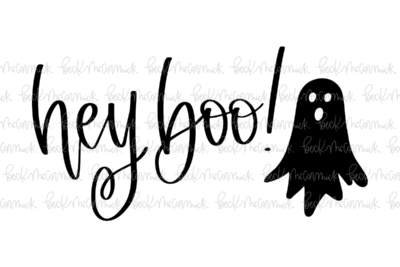 hey boo!